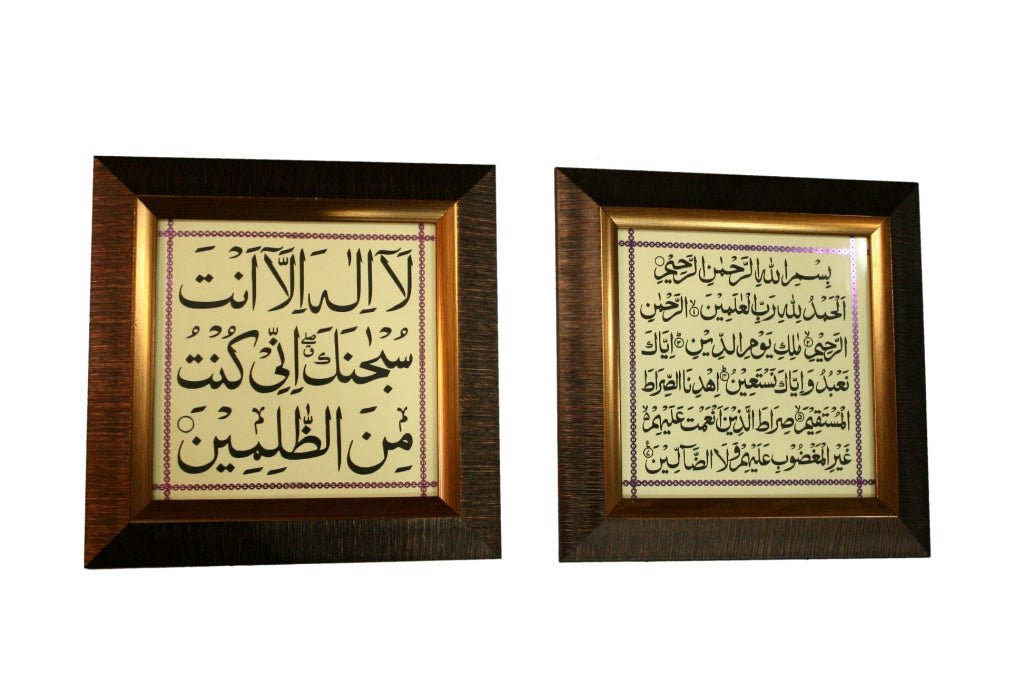 لَآ اِلٰهَ اِلَّآ اَنْتَ
سُبْحٰنَكَ اِنِّیْ كُنْتُ
مِنَ الظّٰلِمِیْنَ
بِسْمِ اللهِ الرَّحْمٰنِ الرَّحِیْمِ
اَلْحَمْدُ لِلّٰهِ رَبِّ الْعٰلَمِیْنَ ۱ الرَّحْمٰنِ
الرَّحِیْمِ ۲ مٰلِكِ یَوْمِ الدِّیْنِ ۳ اِیَّاكَ
نَعْبُدُ وَاِیَّاكَ نَسْتَعِیْنُ ۴ اِهْدِنَا الصِّرَاطَ
الْمُسْتَقِیْمَ ۵ صِرَاطَ الَّذِیْنَ اَنْعَمْتَ عَلَیْهِمْ ۶
غَیْرِ الْمَغْضُوْبِ عَلَیْهِمْ وَلَا الضَّآلِّیْنَ ۷